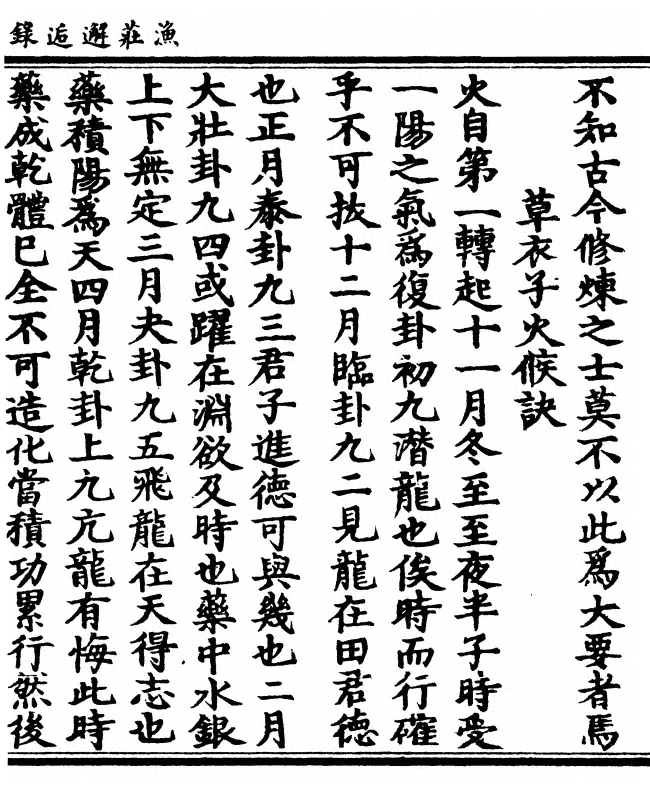 漁莊邂逅錄
不知古今修煉之士莫不以此爲大要者焉
草衣子火候訣
火自第一轉起十一月冬至至夜半子時受
一陽之氣爲復卦初九潛龍也俟時而行確
乎不可拔十二月臨卦九二見龍在田君德
也正月泰卦九三君子進德可與幾也二月
大壯卦九四或躍在淵欲及時也藥中水銀
上下無定三月夬卦九五飛龍在天得志也
藥積陽爲天四月乾卦上九亢龍有悔此時
藥成乾體已全不可造化當積功累行然後